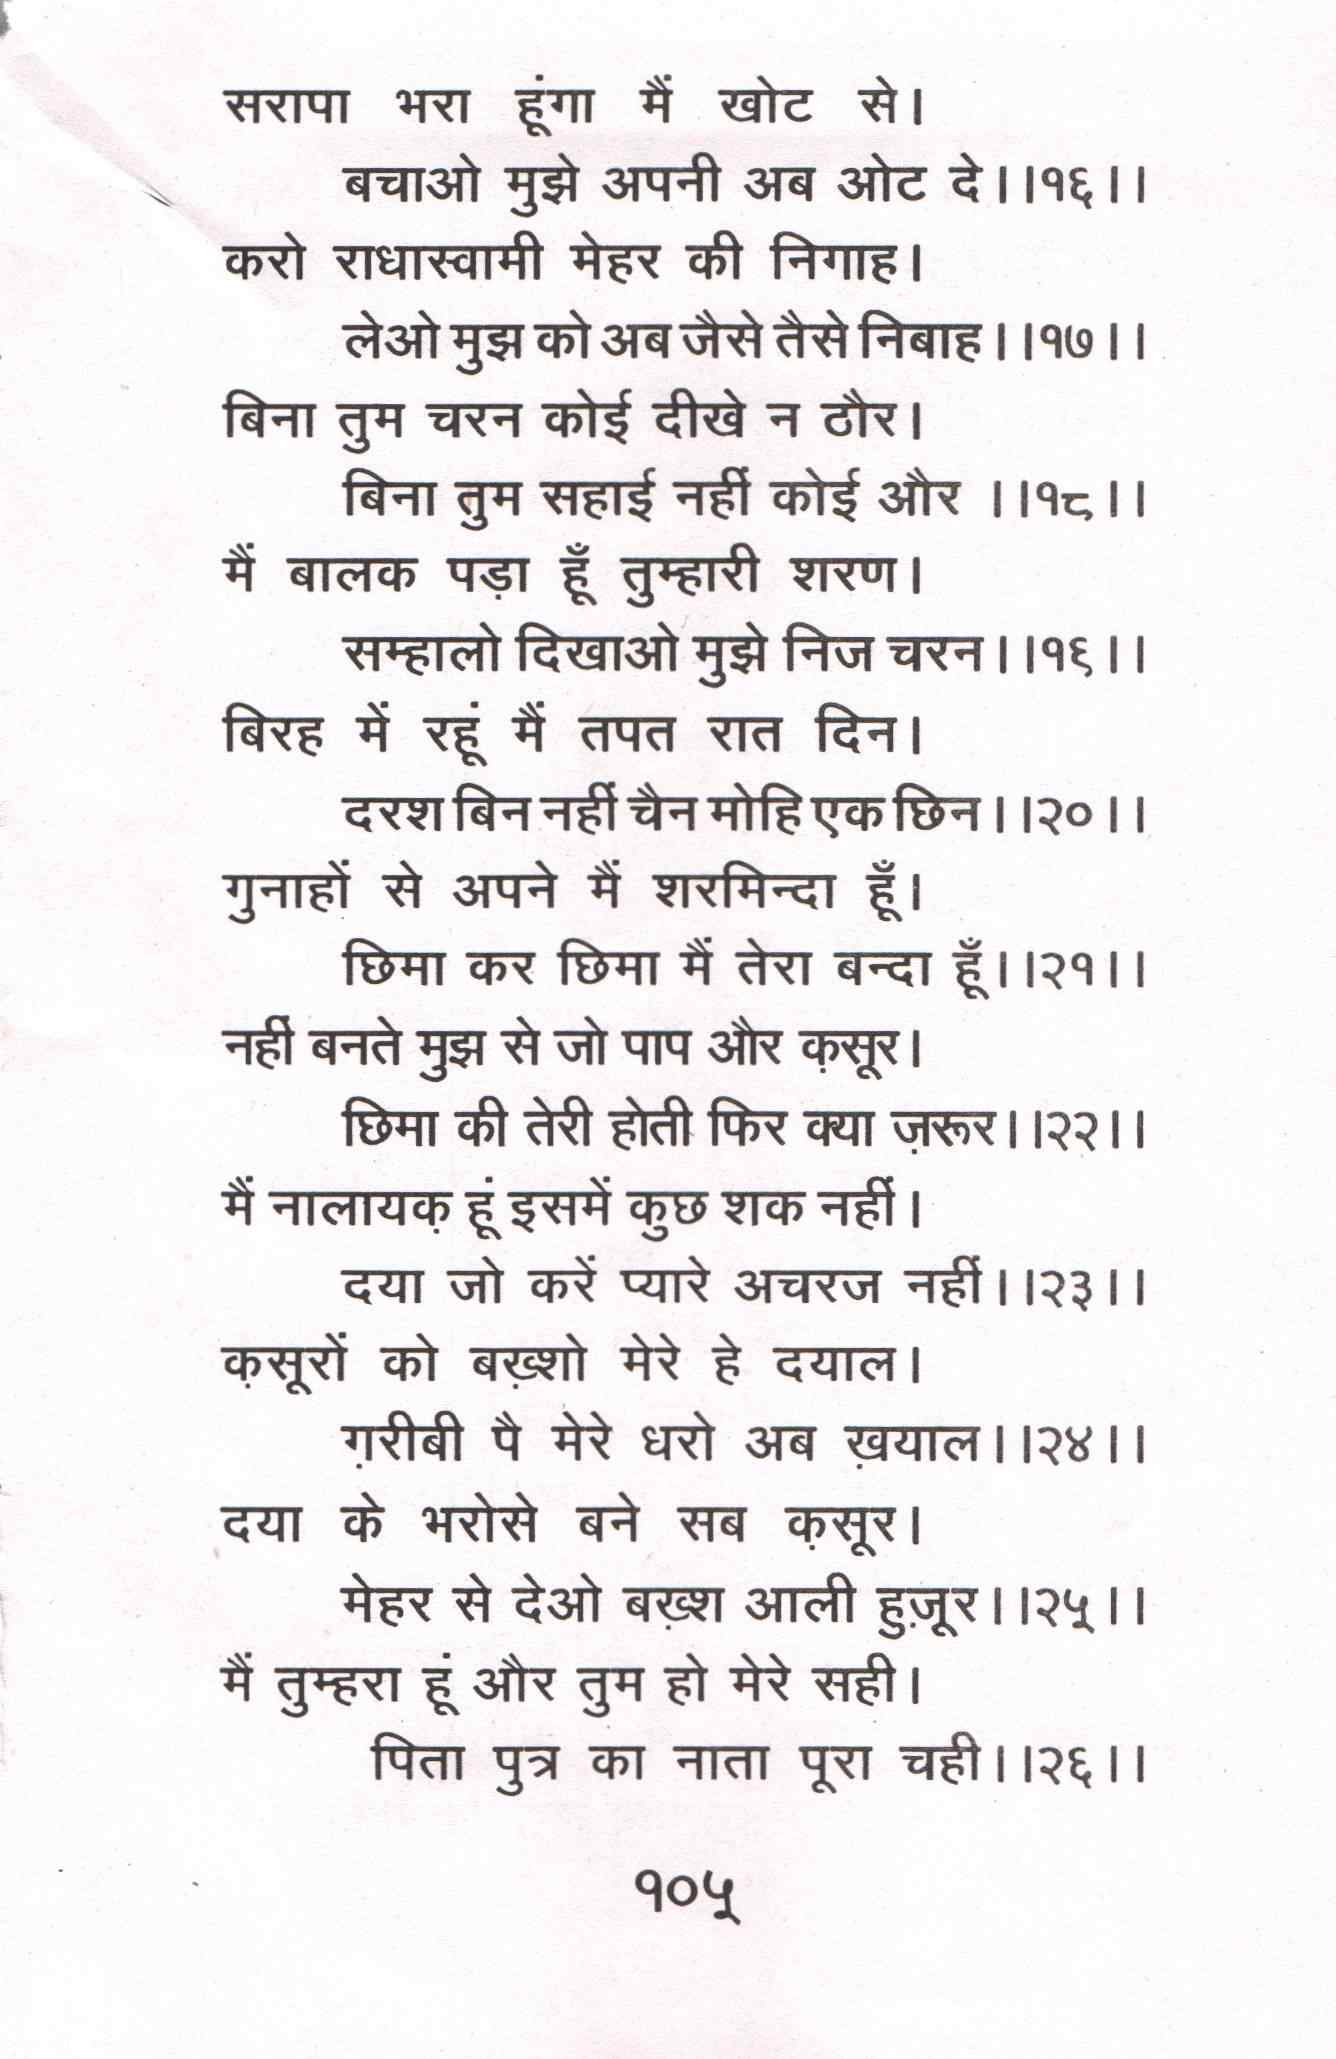 सरापा भरा हूंगा मैं खोट से।
बचाओ मुझे अपनी अब ओट दे।।१६।।
करो राधास्वामी मेहर की निगाह।
लेओ मुझ को अब जैसे तैसे निबाह।।१७।।
बिना तुम चरन कोई दीखे न ठौर।
बिना तुम सहाई नहीं कोई और ।।१८।।
मैं बालक पड़ा हूँ तुम्हारी शरण।
सम्हालो दिखाओ मुझे निज चरन।।१९।।
बिरह में रहूं मैं तपत रात दिन।
दरश बिन नहीं चैन मोहि एक छिन।।२०।।
गुनाहों से अपने मैं शरमिन्दा हूँ।
छिमा कर छिमा मैं तेरा बन्दा हूँ।।२१।।
नहीं बनते मुझ से जो पाप और क़सूर।
छिमा की तेरी होती फिर क्या ज़रूर।।२२।।
मैं नालायक़ हूं इसमें कुछ शक नहीं।
दया जो करें प्यारे अचरज नहीं।।२३।।
क़सूरों को बख़्शो मेरे हे दयाल।
ग़रीबी पै मेरे धरो अब ख़याल।।२४।।
दया के भरोसे बने सब क़सूर।
मेहर से देओ बख़्श आली हुज़ूर।।२५।।
मैं तुम्हरा हूं और तुम हो मेरे सही।
पिता पुत्र का नाता पूरा चही।।२६।।
१०५